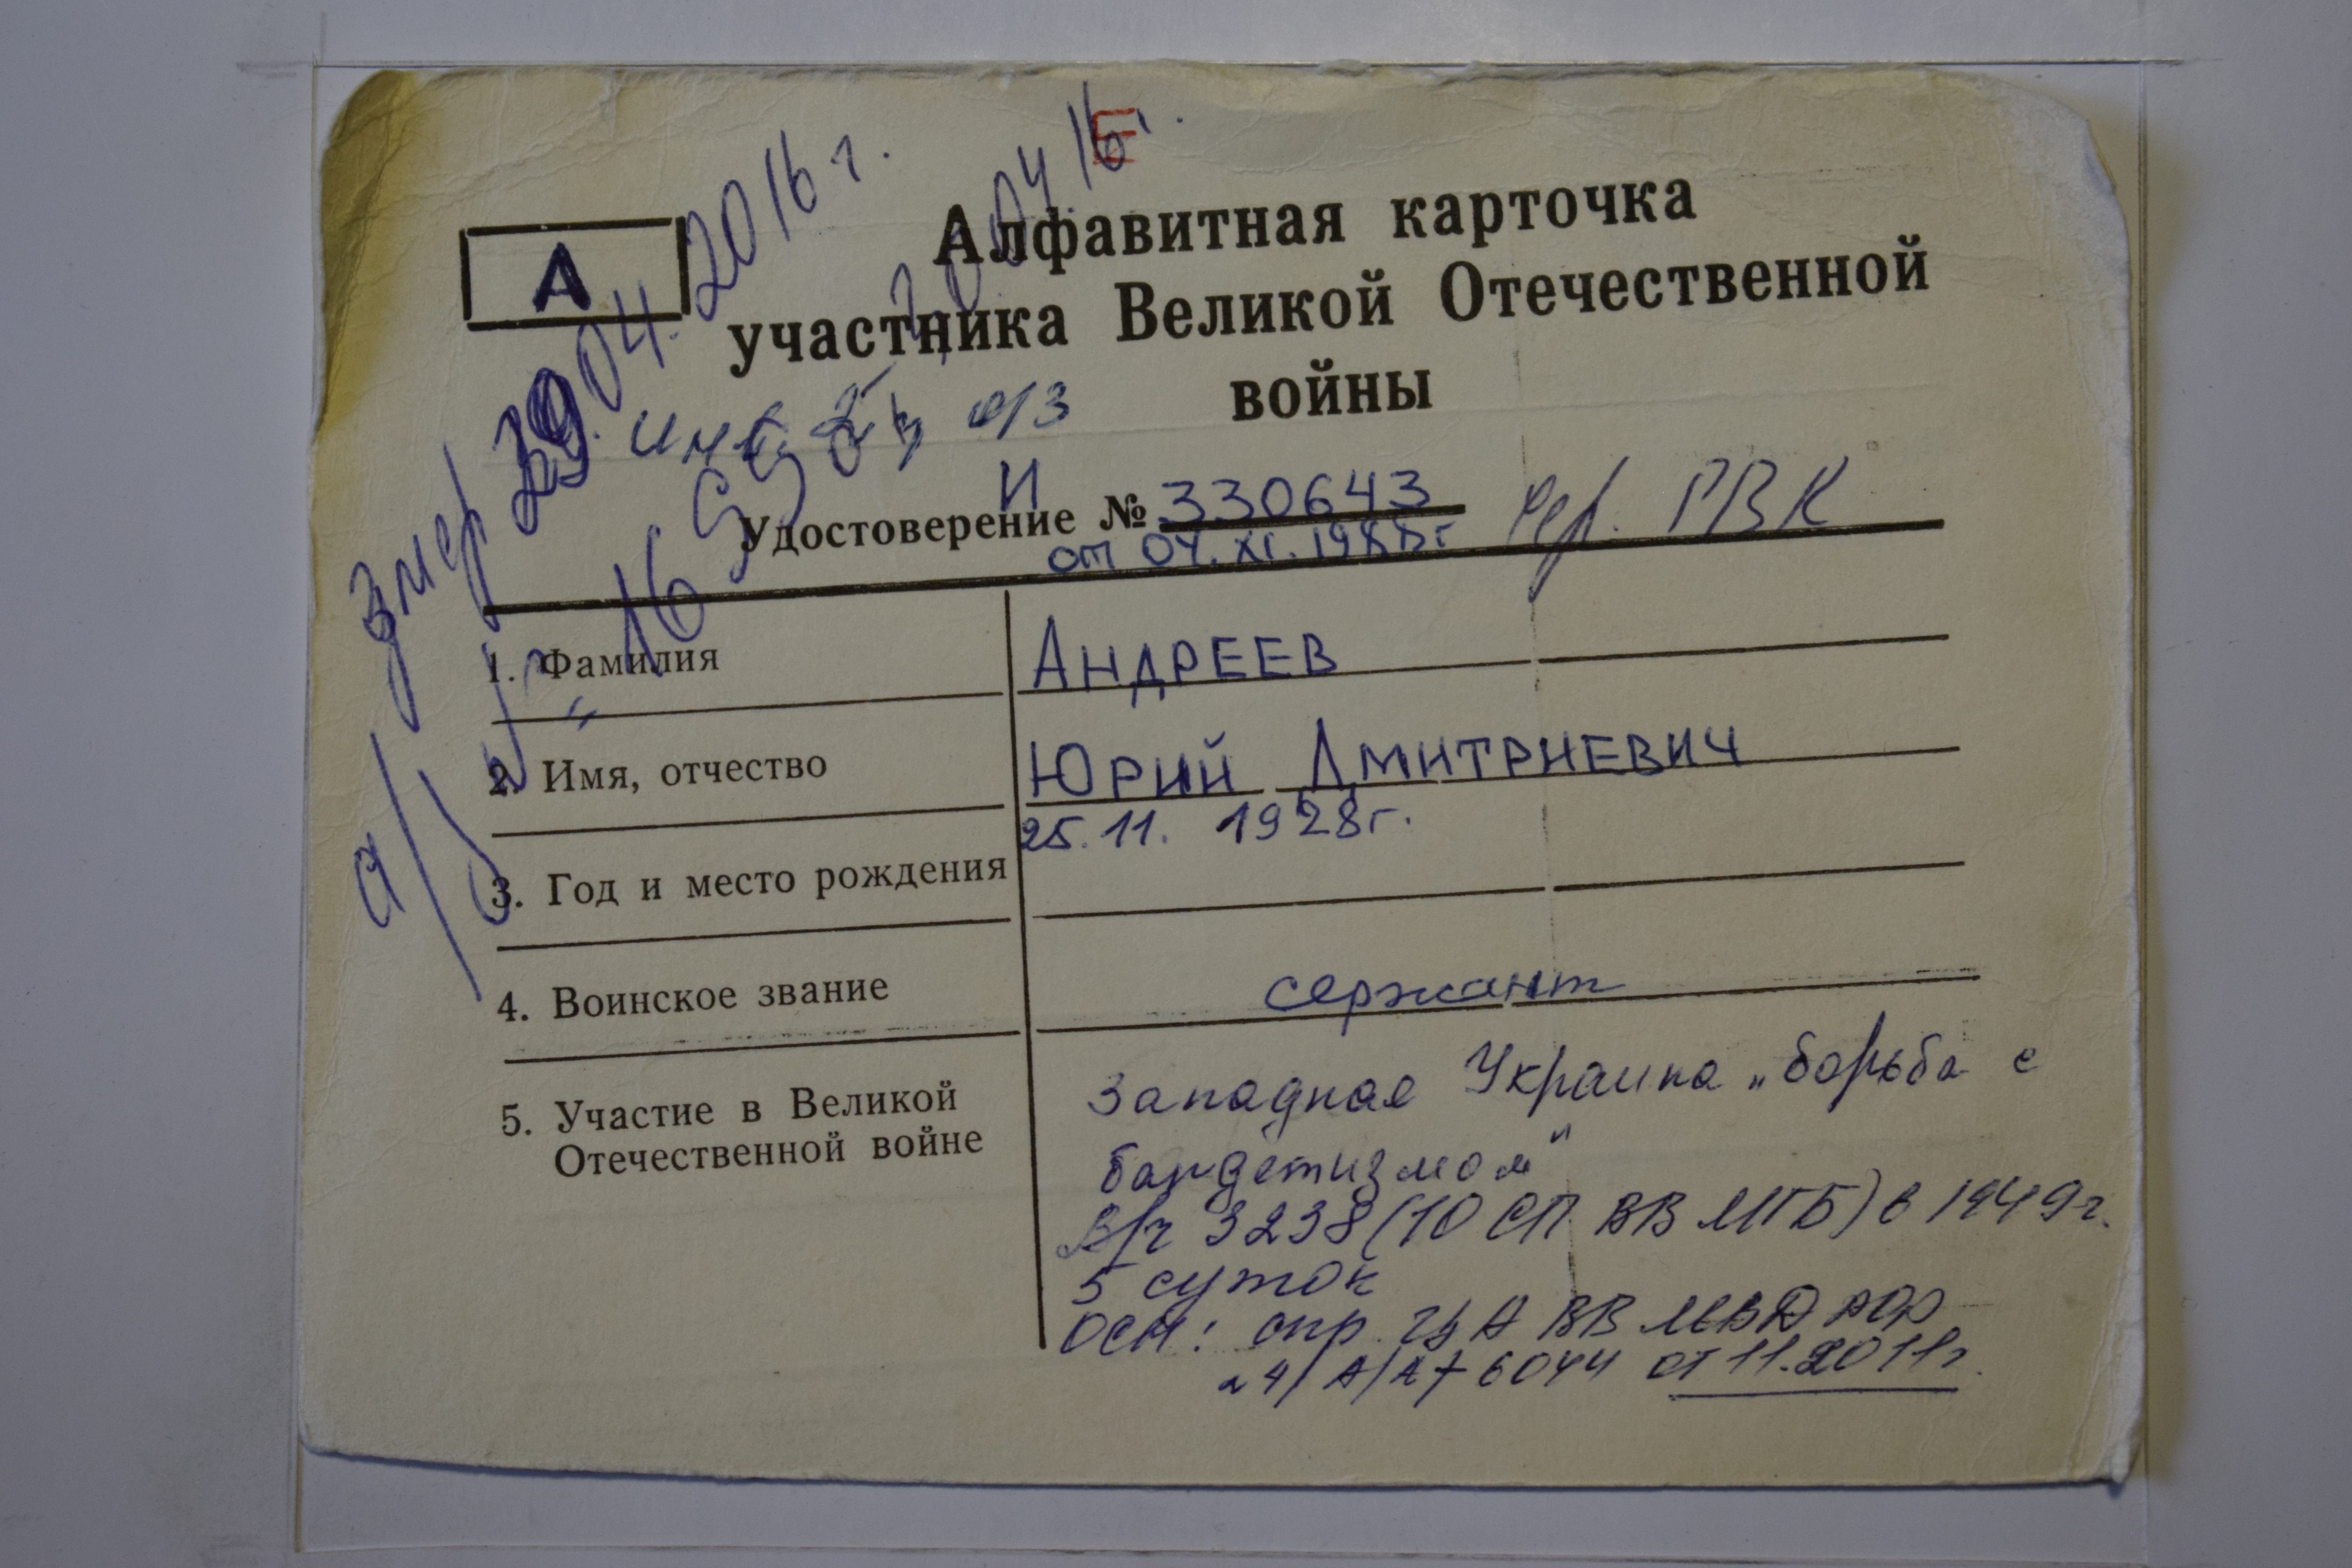 Е
А
Алфавитная карточка
участника Великой Отечественной
войны
умер 29.04.2016 г.
инв. о/з
И
Удостоверение № 330643
РВК
от 04.XI.1988г
1. Фамилия АНДРЕЕВ
2. Имя, отчество ЮРИЙ ДМИТРИЕВИЧ
25.11. 1928г.
3. Год и место рождения
4. Воинское звание сержант
5. Участие в Великой
Отечественной войне
Западная Украина „борьба с
бандетизмом"
В/ч 3238 (10 СП ВВ МГБ) в 1949г.
5 суток
осн: спр. ЦА ВВ МВД
от 11.2011г.